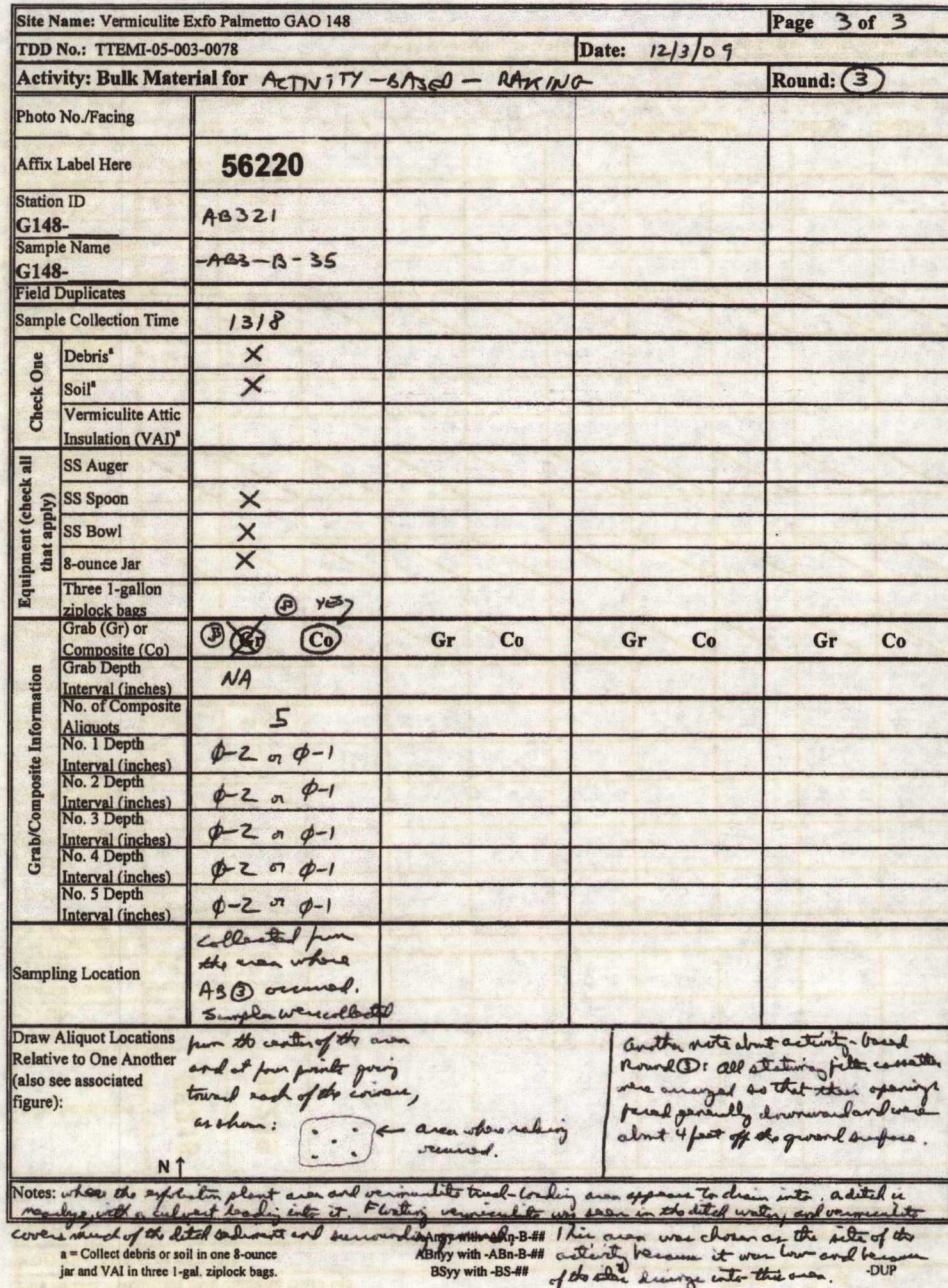 Site Name: Vermiculite Exfo Palmetto GAO 148 Page 3 of 3
TDD No.: TTEMI-05-003-0078 Date: 12/3/09
Activity: Bulk Material for ACTIVITY-BASED - RAKING Round: 3
Photo No./Facing
Affix Label Here 56220
Station ID
G148-____ AB321
Sample Name
G148- -AB3-B-35
Field Duplicates
Sample Collection Time 1318
Check One
Debrisª X
Soilª X
Vermiculite Attic
Insulation (VAI)ª
Equipment (check all that apply)
SS Auger
SS Spoon X
SS Bowl X
8-ounce Jar X
Three 1-gallon
ziplock bags
Grab/Composite Information
Grab (Gr) or
Composite (Co) Gr Co Gr Co Gr Co Gr Co
YES
Grab Depth
Interval (inches) NA
No. of Composite
Aliquots 5
No. 1 Depth
Interval (inches) Ø-2 or Ø-1
No. 2 Depth
Interval (inches) Ø-2 or Ø-1
No. 3 Depth
Interval (inches) Ø-2 or Ø-1
No. 4 Depth
Interval (inches) Ø-2 or Ø-1
No. 5 Depth
Interval (inches) Ø-2 or Ø-1
Sampling Location
collected from
the area where
AB③ occurred.
Samples were collected
Draw Aliquot Locations
Relative to One Another
(also see associated
figure):
from the center of the area
and at four points going
toward each of the corners,
as shown:
← area where raking
occurred.
N ↑
Another note about activity-based
Round ③: All stationary filter cassettes
were arranged so that their openings
faced generally downward and were
about 4 feet off the ground surface.
Notes: where the exfoliation plant area and vermiculite truck-loading area appears to drain into. a ditch is
nearby, with a culvert leading into it. Floating vermiculite was seen in the ditch water, and vermiculite
covers much of the ditch sediment and surrounding This area was chosen as the site of the
-B-##
ABnyy with -ABn-B-## activity because it was low and because
a = Collect debris or soil in one 8-ounce
jar and VAI in three 1-gal. ziplock bags.
BSyy with -BS-## of the drainage into this area.
-DUP